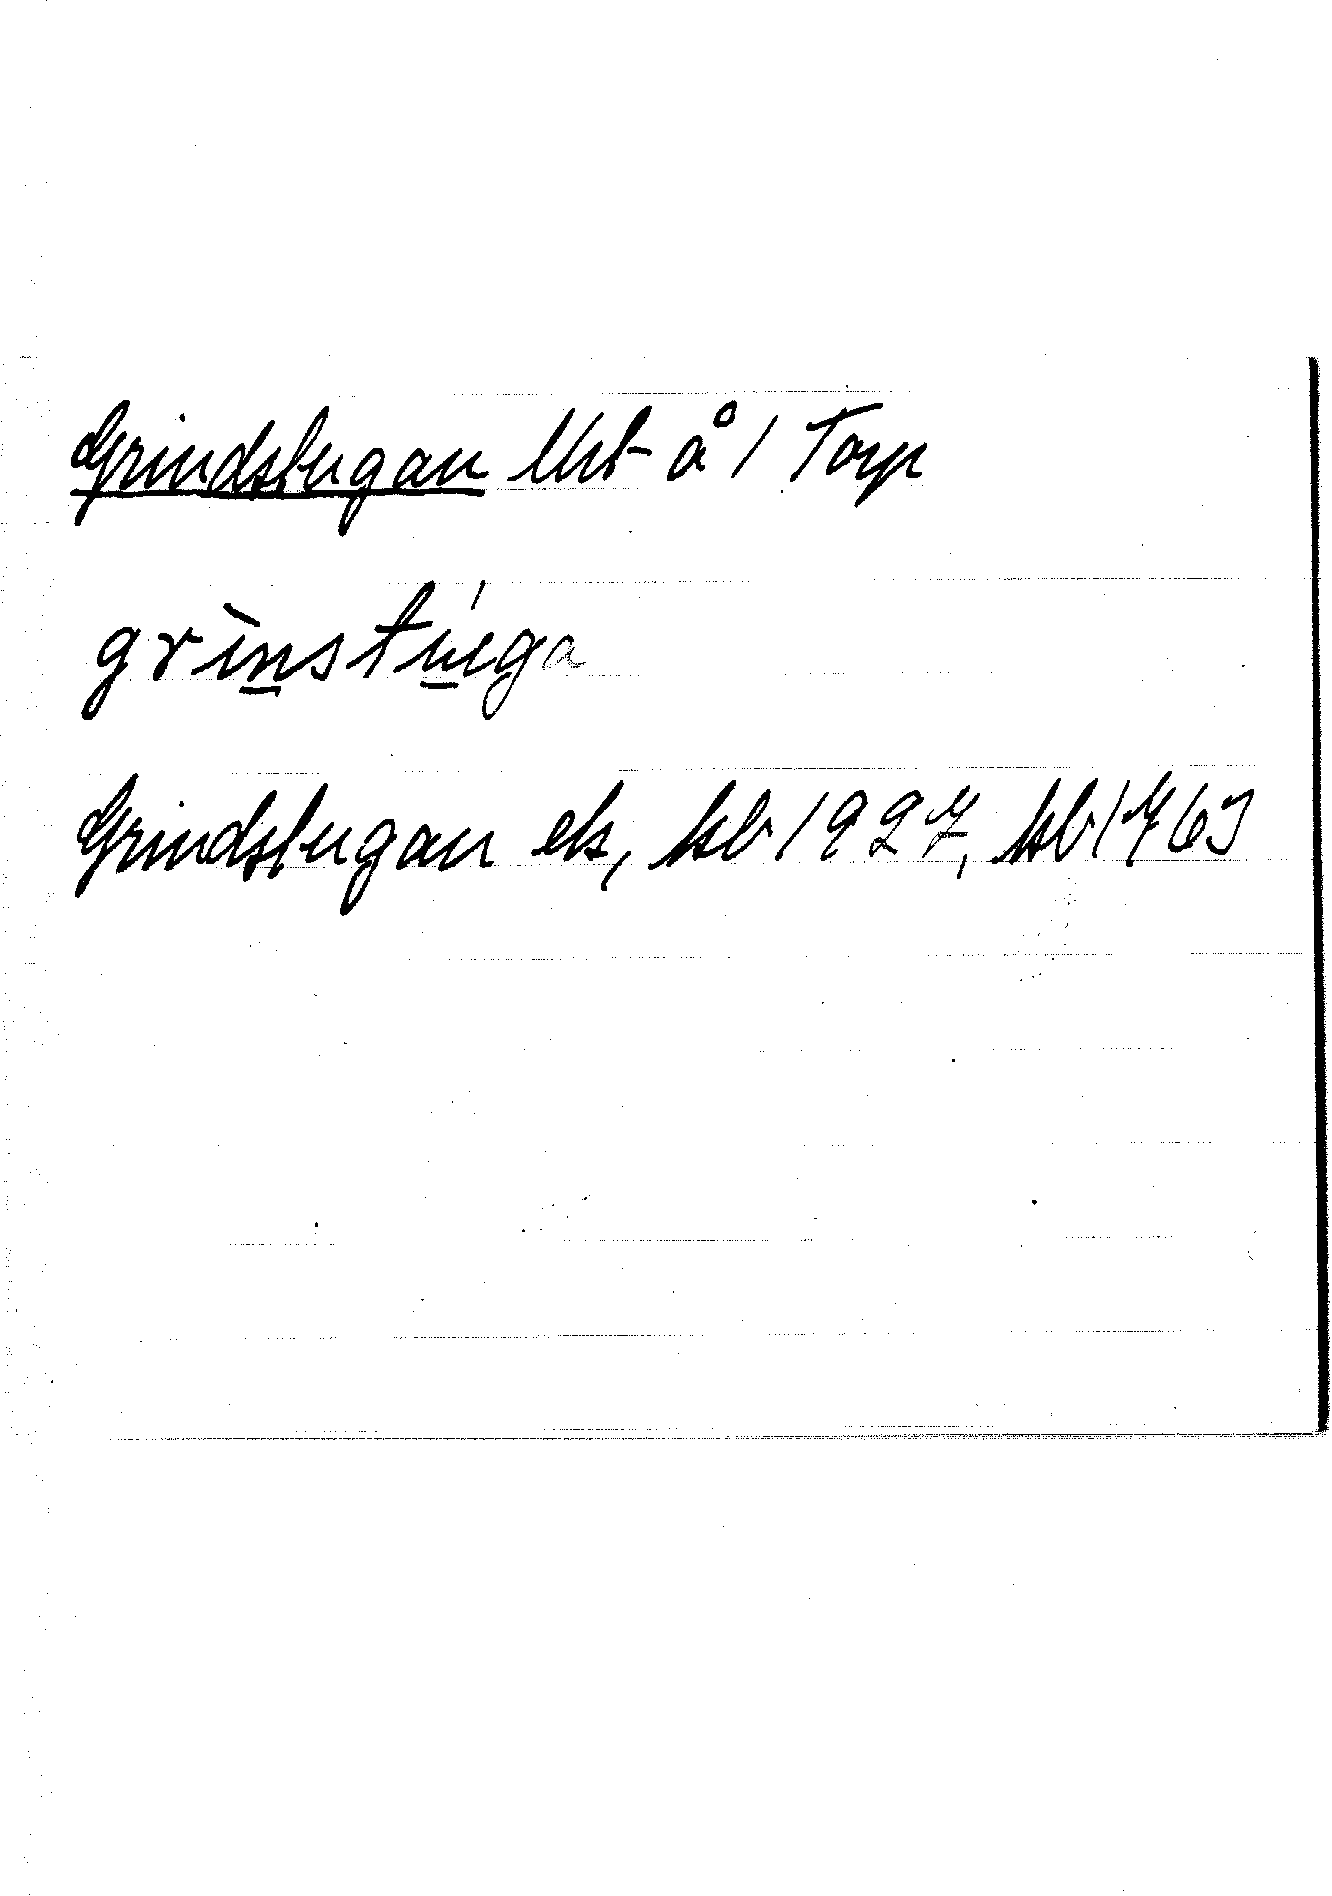 Grindstugan Lht å 1 Torp
grìnstúega
Grindstugan ek, kb 1927, kb 1763